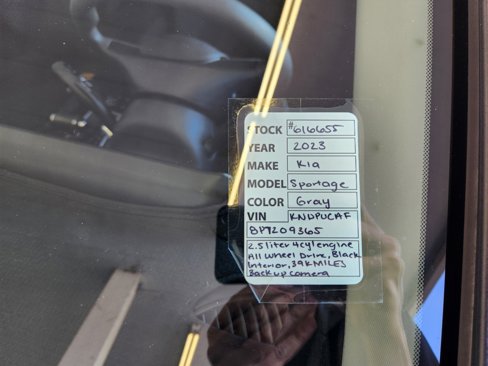 STOCK #616655
YEAR 2023
MAKE Kia
MODEL Sportage
COLOR Gray
VIN KNDPUCAF
BP7209365
2.5 liter 4cyl engine
All Wheel Drive, Black
Interior, 39K MILES
Back up camera